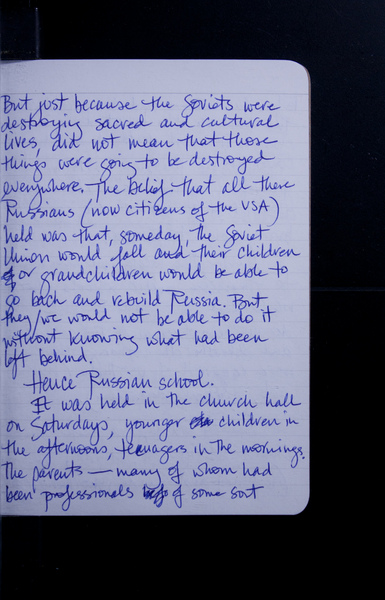 But just because the Soviets were
destroying sacred and cultural
lives, did not mean that those
things were going to be destroyed
everywhere. The belief that all these
Russians (now citizens of the USA)
held was that, someday, the Soviet
Union would fall and their children
or grandchildren would be able to
go back and rebuild Russia. But
they/we would not be able to do it
without knowing what had been
left behind.
Hence Russian school.
It was held in the church hall
on Saturdays, younger children in
the afternoons, teenagers in the mornings.
The parents — many of whom had
been professionals of some sort